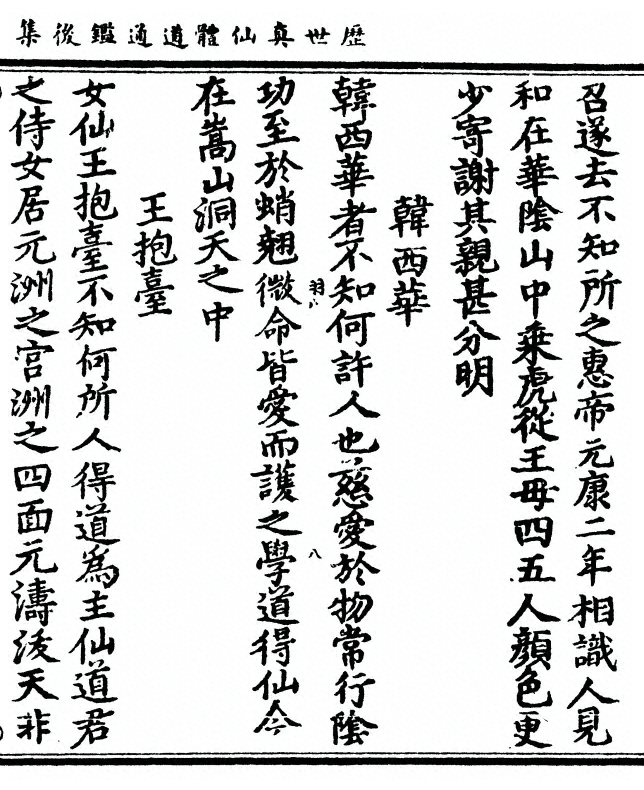 歷世真仙體道通鑑後集
召遂去不知所之惠帝元康二年相識人見
和在華陰山中乘虎從王母四五人顏色更
少寄謝其親甚分明
韓西華
韓西華者不知何許人也慈愛於物常行陰
羽八
八
功至於蛸翹微命皆愛而護之學道得仙今
在嵩山洞天之中
王抱臺
女仙王抱臺不知何所人得道為主仙道君
之侍女居元洲之宮洲之四面元濤浚天非